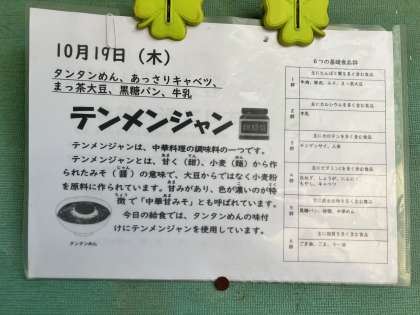 10月19日（木）
タンタンめん、あっさりキャベツ、
まっ茶大豆、黒糖パン、牛乳
テンメンジャン
テンメンジャンは、中華料理の調味料の一つです。
テンメンジャンとは、甘く（甜）、小麦（麺）から作
られたみそ（醤）の意味で、大豆からではなく小麦粉
を原料に作られています。甘みがあり、色が濃いのが特
徴で「中華甘みそ」とも呼ばれています。
今日の給食では、タンタンめんの味付
けにテンメンジャンを使用しています。
タンタンめん
6つの基礎食品群
1群
主にたんぱく質を多く含む食品
2群
主にカルシウムを多く含む食品
牛乳
3群
主にカロテンを多く含む食品
チンゲンサイ、人参
4群
主にビタミンCを多く含む食品
もやし、キャベツ
5群
6群
主に脂質を多く含む食品